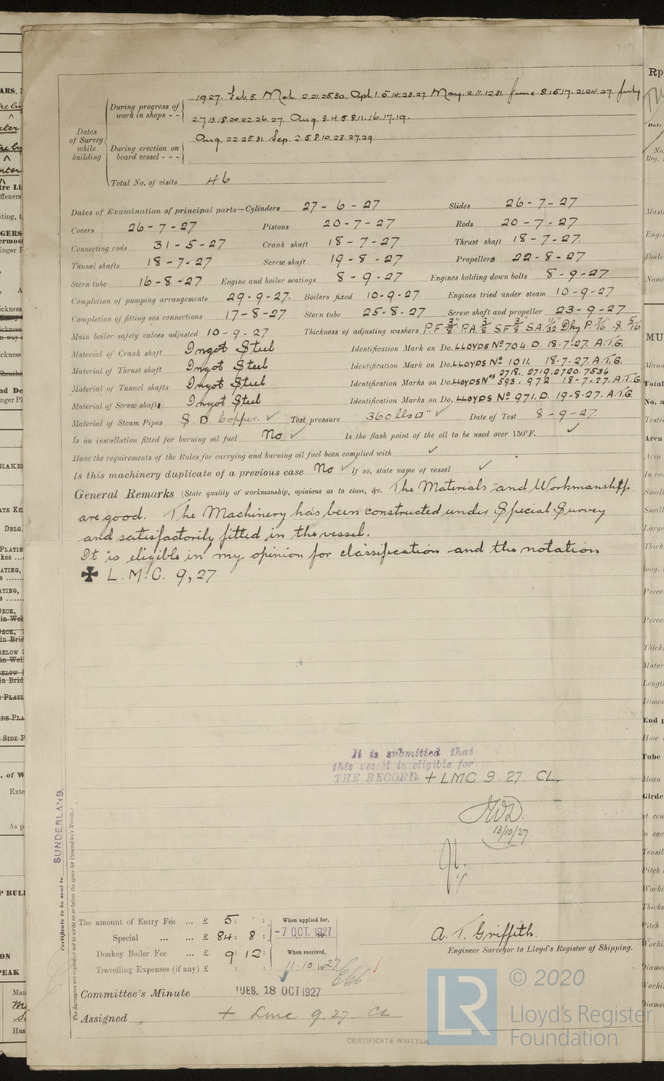 Dates of Survey while building
During progress of work in shops - -
1927. Feb. 5. Mch. 2.21.25.30. Apl. 1.5.14.23.27. May. 2.11.12.31. June 8.15.17.21.24.27. July
2.7.13.18.20.22.26.27. Aug. 3.4.5.8.11.16.17.19.
During erection on board vessel - - -
Aug. 22.25.31. Sep. 2.5.8.10.23.27.29.
Total No. of visits 46
Dates of Examination of principal parts—Cylinders 27-6-27 Slides 26-7-27
Covers 26-7-27 Pistons 20-7-27 Rods 20-7-27
Connecting rods 31-5-27 Crank shaft 18-7-27 Thrust shaft 18-7-27
Tunnel shafts 18-7-27 Screw shaft 19-8-27 Propellers 22-8-27
Stern tube 16-8-27 Engine and boiler seatings 8-9-27 Engines holding down bolts 8-9-27
Completion of pumping arrangements 29-9-27. Boilers fixed 10-9-27. Engines tried under steam 10-9-27
Completion of fitting sea connections 17-8-27 Stern tube 25-8-27 Screw shaft and propeller 23-9-27
Main boiler safety valves adjusted 10-9-27 Thickness of adjusting washers P.F. 3/8" P.A. 3/8 S.F. 3/8 S.A. 11/32
Material of Crank shaft Ingot Steel Identification Mark on Do. LLOYDS No 704. D. 18.7.27. A.T.G.
Material of Thrust shaft Ingot Steel Identification Mark on Do. LLOYDS No 1011. 18.7.27. A.T.G.
Material of Tunnel shafts Ingot Steel Identification Marks on Do. LLOYDS Nos 2718. 2719. 2720. 7534 593. 972 18-7-27. A.T.G
Material of Screw shafts Ingot Steel Identification Marks on Do. LLOYDS No 971. D. 19.8.27. A.T.G
Material of Steam Pipes S. D. Copper. ✓ Test pressure 360 lbs □" ✓ Date of Test 8-9-27.
Is an installation fitted for burning oil fuel No ✓ Is the flash point of the oil to be used over 150°F. ✓
Have the requirements of the Rules for carrying and burning oil fuel been complied with ✓
Is this machinery duplicate of a previous case No ✓ If so, state name of vessel ✓
General Remarks (State quality of workmanship, opinions as to class, &c. The Materials and Workmanship
are good. The Machinery has been constructed under Special Survey
and satisfactorily fitted in the vessel.
It is eligible in my opinion for classification and the notation
✠ L.M.C. 9,27
It is submitted that
this vessel is eligible for
THE RECORD. + LMC 9.27 CL.
13/10/27
SUNDERLAND.
Certificate to be sent to
The amount of Entry Fee ... £ 5 : :
Special ... ... £ 84 : 8 :
Donkey Boiler Fee ... £ 9 : 12 :
Travelling Expenses (if any) £ : :
When applied for,
-7 OCT. 1927
When received,
11.10.1927
A. T. Griffith.
Engineer Surveyor to Lloyd's Register of Shipping.
Committee's Minute TUES. 18 OCT 1927
Assigned + Lmc 9.27 CL
CERTIFICATE WRITTEN
LR © 2020
Lloyd's Register
Foundation